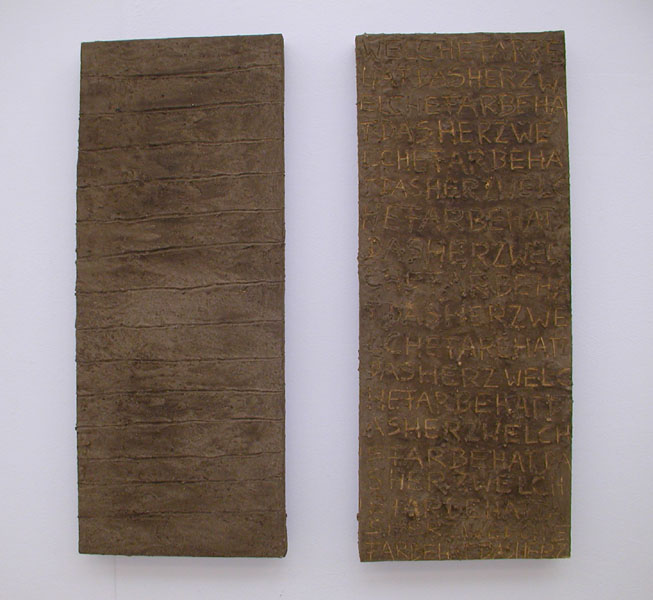 WELCHEFARBE
HATDASHERZW
ELCHEFARBEHA
TDASHERZWE
LCHEFARBEHAT
DASHERZWELC
HEFARBEHAT
DASHERZWEL
CHEFARBEHA
TDASHERZWE
CHEFARBEHAT
DASHERZWELC
HEFARBEHAT
DASHERZWELCH
EFARBEHATDA
HERZWELCH
FARBEHAT